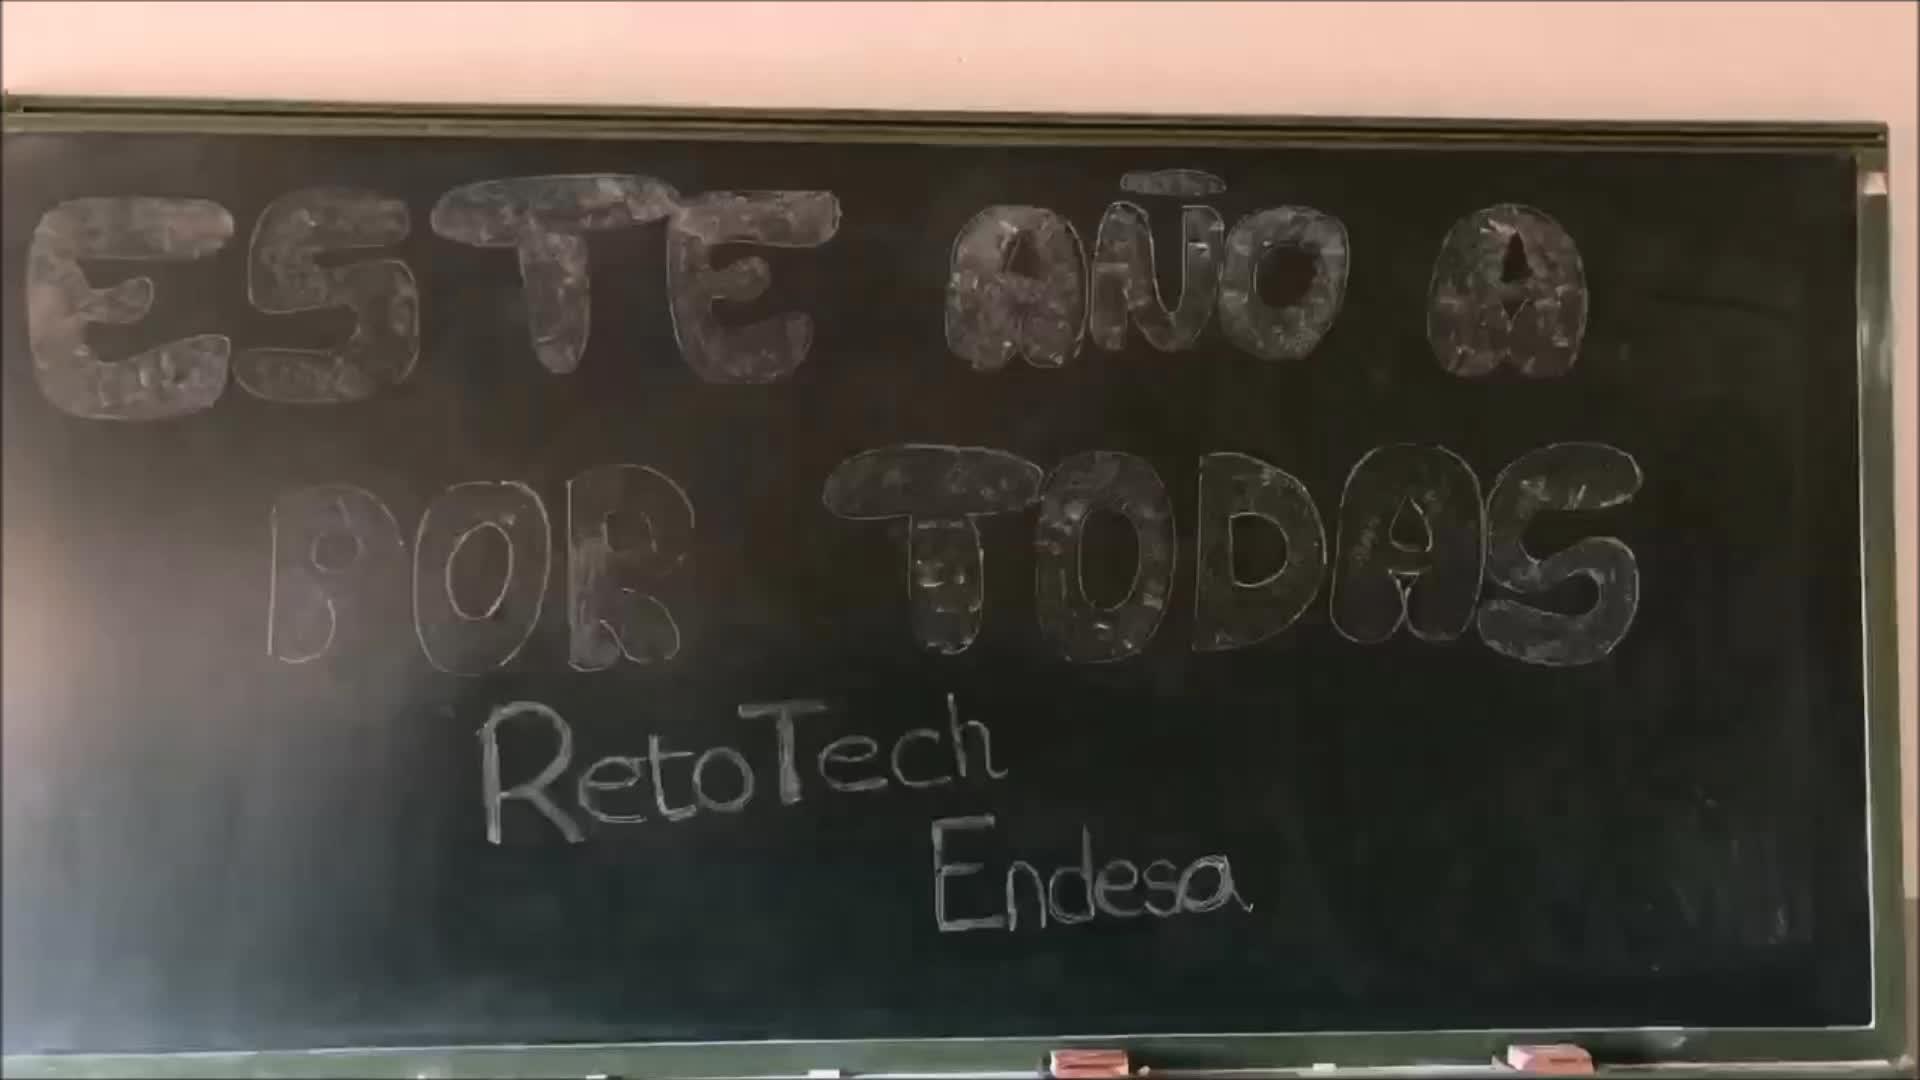 ESTE AÑO A
POR TODAS
RetoTech
Endesa